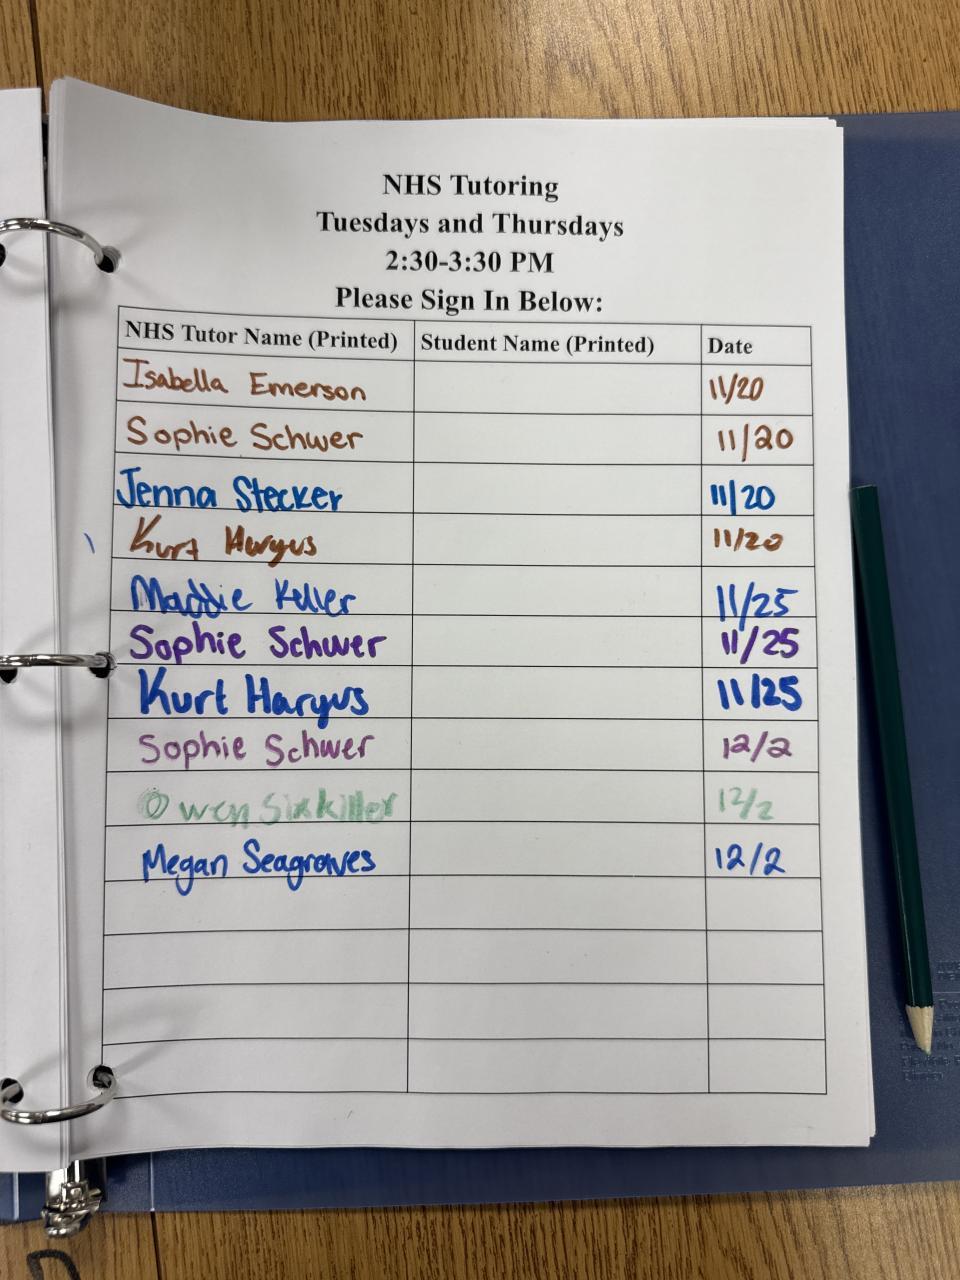 NHS Tutoring
Tuesdays and Thursdays
2:30-3:30 PM
Please Sign In Below:
NHS Tutor Name (Printed) Student Name (Printed) Date
Isabella Emerson 11/20
Sophie Schwer 11/20
Jenna Stecker 11/20
Kurt Hargus 11/20
Maddie Keller 11/25
Sophie Schwer 11/25
Kurt Hargus 11/25
Sophie Schwer 12/2
Owen Sixkiller 12/2
Megan Seagraves 12/2